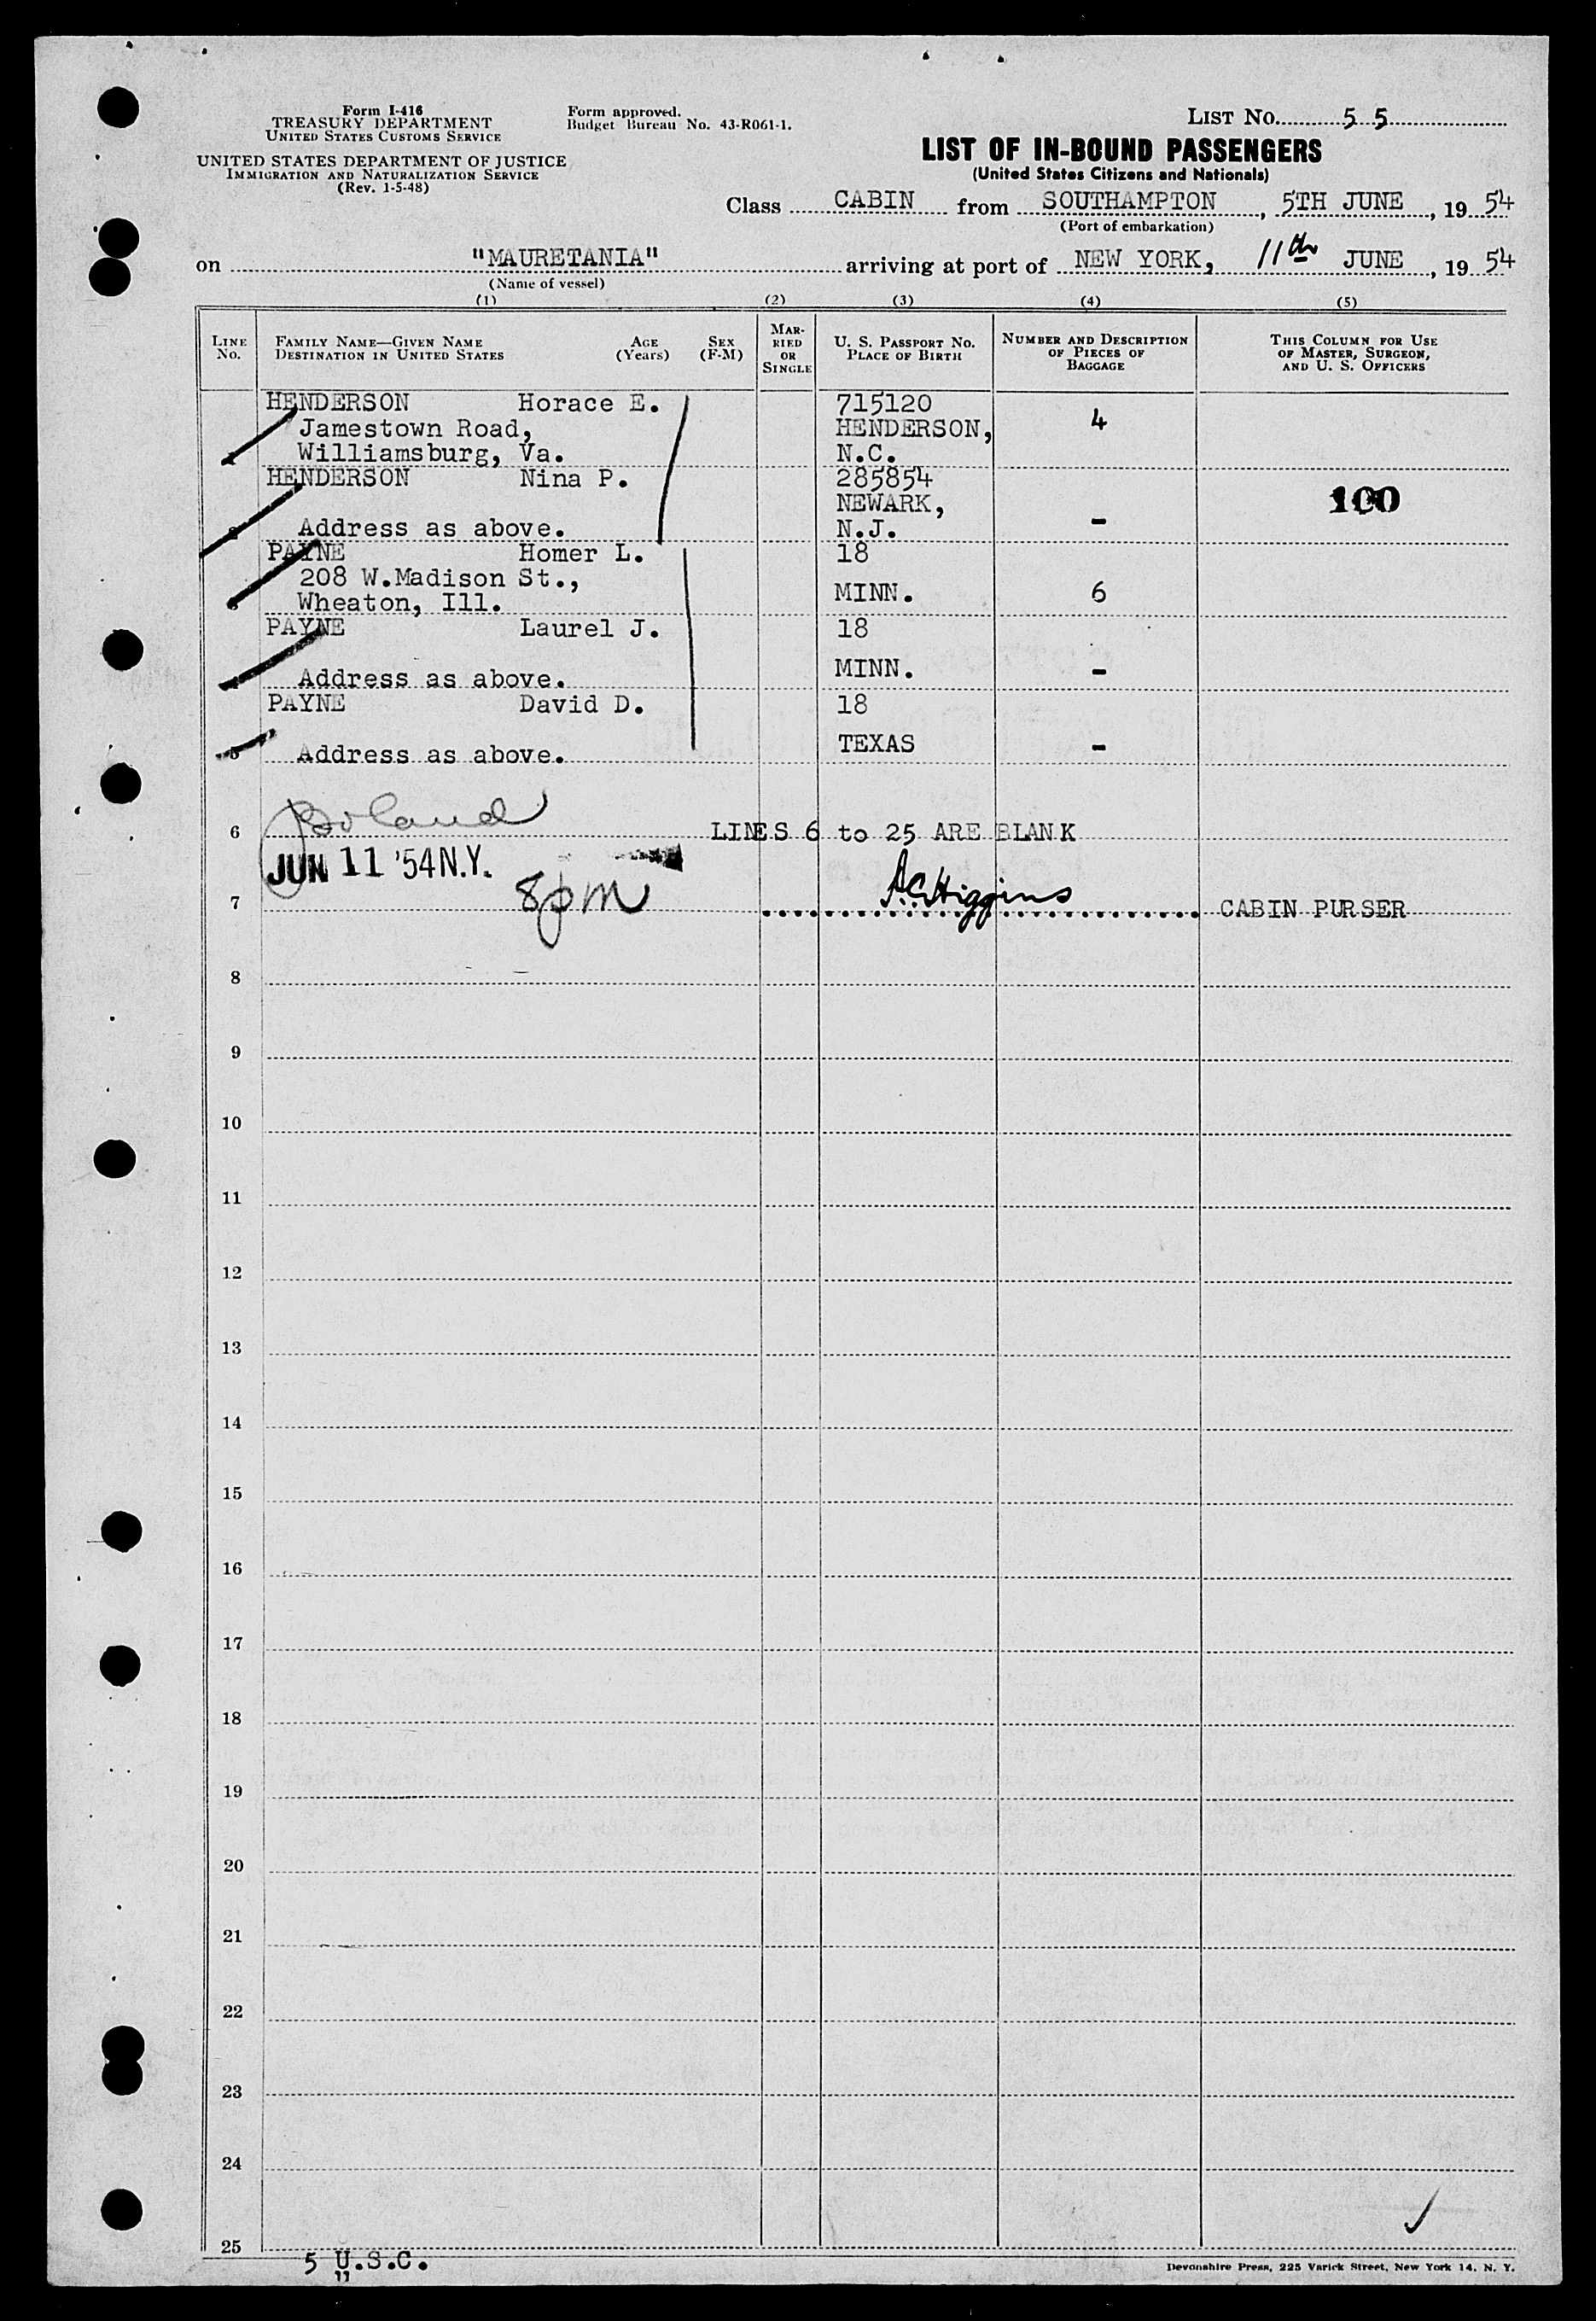 Form I-416
TREASURY DEPARTMENT
UNITED STATES CUSTOMS SERVICE
UNITED STATES DEPARTMENT OF JUSTICE
IMMIGRATION AND NATURALIZATION SERVICE
(Rev. 1-5-48)
Form approved.
Budget Bureau No. 43-R061-1.
LIST No. 5 5
LIST OF IN-BOUND PASSENGERS
(United States Citizens and Nationals)
Class CABIN from SOUTHAMPTON, 5TH JUNE, 19 54
(Port of embarkation)
on "MAURETANIA" arriving at port of NEW YORK, 11th JUNE, 19 54
(Name of vessel)
(1) (2) (3) (4) (5)
LINE No. FAMILY NAME—GIVEN NAME DESTINATION IN UNITED STATES AGE (Years) SEX (F-M) MARRIED OR SINGLE U. S. PASSPORT NO. PLACE OF BIRTH NUMBER AND DESCRIPTION OF PIECES OF BAGGAGE THIS COLUMN FOR USE OF MASTER, SURGEON, AND U. S. OFFICERS
HENDERSON Horace E. 715120
Jamestown Road, HENDERSON, 4
Williamsburg, Va. N.C.
HENDERSON Nina P. 285854
NEWARK, 100
Address as above. N.J. -
PAYNE Homer L. 18
208 W.Madison St., MINN. 6
Wheaton, Ill.
PAYNE Laurel J. 18
MINN. -
Address as above.
PAYNE David D. 18
TEXAS -
5 Address as above.
Boland
6 LINES 6 to 25 ARE BLANK
JUN 11 '54 N.Y.
8pm
7 A.C. Higgins CABIN PURSER
8
9
10
11
12
13
14
15
16
17
18
19
20
21
22
23
24
25
5 U.S.C.
Devonshire Press, 225 Varick Street, New York 14, N. Y.